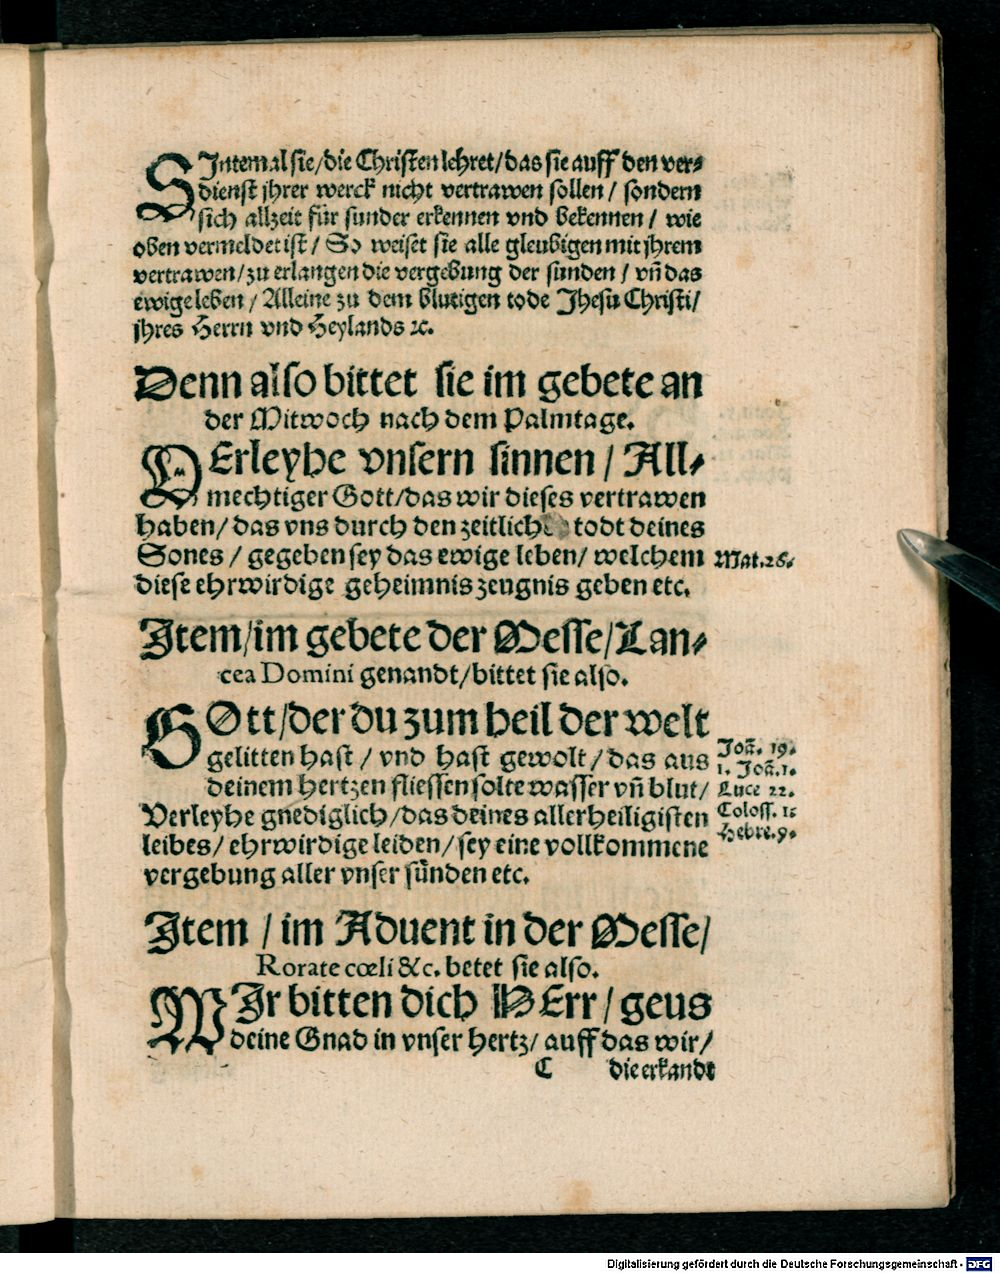 SIntemal sie/die Christen lehret/das sie auff den ver-
dienst jhrer werck nicht vertrawen sollen/ sondern
sich allzeit für sunder erkennen vnd bekennen/ wie
oben vermeldet ist/ So weiset sie alle gleubigen mit jhrem
vertrawen/zu erlangen die vergebung der sunden/ vñ das
ewige leben/ Alleine zu dem blutigen tode Jhesu Christi/
jhres Herrn vnd Heylands ꝛc.
Denn also bittet sie im gebete an
der Mitwoch nach dem Palmtage.
VErleyhe vnsern sinnen/ All-
mechtiger Gott/das wir dieses vertrawen
haben/ das vns durch den todt deines
Sones/ gegeben sey das ewige leben/ welchem
Mat.26.
diese ehrwirdige geheimnis zeugnis geben etc.
Item/im gebete der Messe/Lan-
cea Domini genandt/bittet sie also.
GOtt/der du zum heil der welt
gelitten hast/ vnd hast gewolt/ das aus
Joã. 19.
deinem hertzen fliessen solte wasser vñ blut/
1. Joã.1.
Luce 22.
Verleyhe gnediglich/das deines allerheiligisten
Coloss. 1:
leibes/ ehrwirdige leiden/ sey eine vollkommene
Hebre.9.
vergebung aller vnser sünden etc.
Item/ im Aduent in der Messe/
Rorate cœli &c. betet sie also.
WIr bitten dich HErr/ geus
deine Gnad in vnser hertz/ auff das wir/
C die erkandt
Digitalisierung gefördert durch die Deutsche Forschungsgemeinschaft - DFG